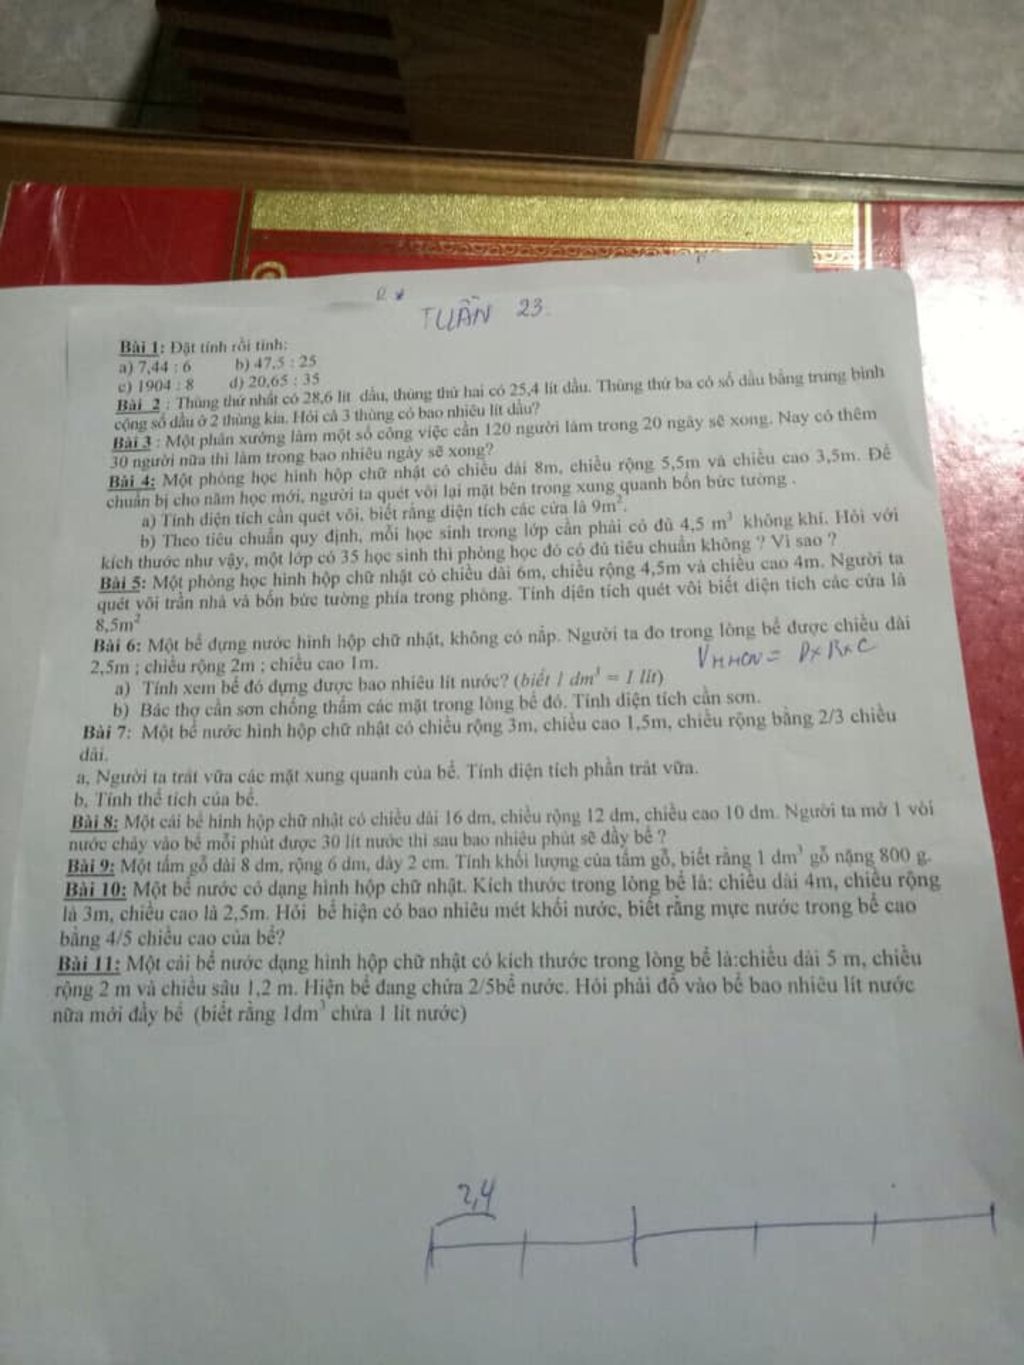 TUẦN 23.
Bài 1: Đặt tính rồi tính:
a) 7,44 : 6 b) 47,5 : 25
c) 1904 : 8 d) 20,65 : 35
Bài 2 : Thùng thứ nhất có 28,6 lít dầu, thùng thứ hai có 25,4 lít dầu. Thùng thứ ba có số dầu bằng trung bình
cộng số dầu ở 2 thùng kia. Hỏi cả 3 thùng có bao nhiêu lít dầu?
Bài 3 : Một phân xưởng làm một số công việc cần 120 người làm trong 20 ngày sẽ xong. Nay có thêm
30 người nữa thì làm trong bao nhiêu ngày sẽ xong?
Bài 4: Một phòng học hình hộp chữ nhật có chiều dài 8m, chiều rộng 5,5m và chiều cao 3,5m. Để
chuẩn bị cho năm học mới, người ta quét vôi lại mặt bên trong xung quanh bốn bức tường .
a) Tính diện tích cần quét vôi, biết rằng diện tích các cửa là 9m².
b) Theo tiêu chuẩn quy định, mỗi học sinh trong lớp cần phải có đủ 4,5 m³ không khí. Hỏi với
kích thước như vậy, một lớp có 35 học sinh thì phòng học đó có đủ tiêu chuẩn không ? Vì sao ?
Bài 5: Một phòng học hình hộp chữ nhật có chiều dài 6m, chiều rộng 4,5m và chiều cao 4m. Người ta
quét vôi trần nhà và bốn bức tường phía trong phòng. Tính diện tích quét vôi biết diện tích các cửa là
8,5m²
Bài 6: Một bể đựng nước hình hộp chữ nhật, không có nắp. Người ta đo trong lòng bể được chiều dài
2,5m ; chiều rộng 2m ; chiều cao 1m.
VHHCN = D x R x C
a) Tính xem bể đó đựng được bao nhiêu lít nước? (biết 1 dm³ = 1 lít)
b) Bác thợ cần sơn chống thấm các mặt trong lòng bể đó. Tính diện tích cần sơn.
Bài 7: Một bể nước hình hộp chữ nhật có chiều rộng 3m, chiều cao 1,5m, chiều rộng bằng 2/3 chiều
dài.
a, Người ta trát vữa các mặt xung quanh của bể. Tính diện tích phần trát vữa.
b, Tính thể tích của bể.
Bài 8: Một cái bể hình hộp chữ nhật có chiều dài 16 dm, chiều rộng 12 dm, chiều cao 10 dm. Người ta mở 1 vòi
nước chảy vào bể mỗi phút được 30 lít nước thì sau bao nhiêu phút sẽ đầy bể ?
Bài 9: Một tấm gỗ dài 8 dm, rộng 6 dm, dày 2 cm. Tính khối lượng của tấm gỗ, biết rằng 1 dm³ gỗ nặng 800 g.
Bài 10: Một bể nước có dạng hình hộp chữ nhật. Kích thước trong lòng bể là: chiều dài 4m, chiều rộng
là 3m, chiều cao là 2,5m. Hỏi bể hiện có bao nhiêu mét khối nước, biết rằng mực nước trong bể cao
bằng 4/5 chiều cao của bể?
Bài 11: Một cái bể nước dạng hình hộp chữ nhật có kích thước trong lòng bể là:chiều dài 5 m, chiều
rộng 2 m và chiều sâu 1,2 m. Hiện bể đang chứa 2/5bể nước. Hỏi phải đổ vào bể bao nhiêu lít nước
nữa mới đầy bể (biết rằng 1dm³ chứa 1 lít nước)
2,4